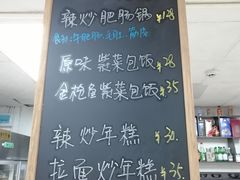 辣炒肥肠锅 ¥128
食材:牛肥肠、毛肚、
原味 紫菜包饭 ¥28
金枪鱼紫菜包饭 ¥35
辣炒年糕 ¥30.
拉面炒年糕 ¥35.